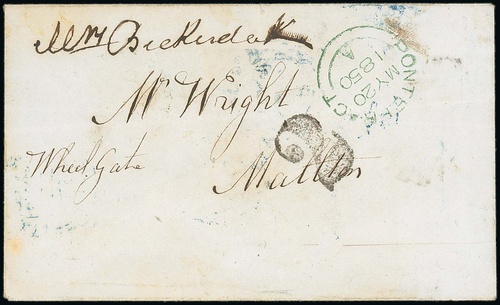 Mrs Bickerdek
PONTEFRACT
A
MY 20
1850
Mr Wright
Wheel Gate
Malton